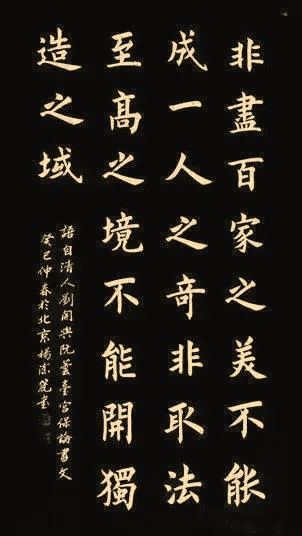 非盡百家之美不能
成一人之奇非取法
至高之境不能開獨
造之域
語自清人劉開與阮芸臺宮保論書文
癸巳仲春於北京楊